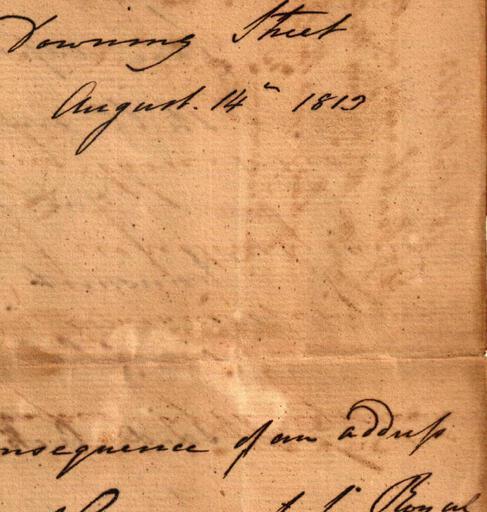 Downing Street
August. 14th 1819
nsequence of an address
Royal